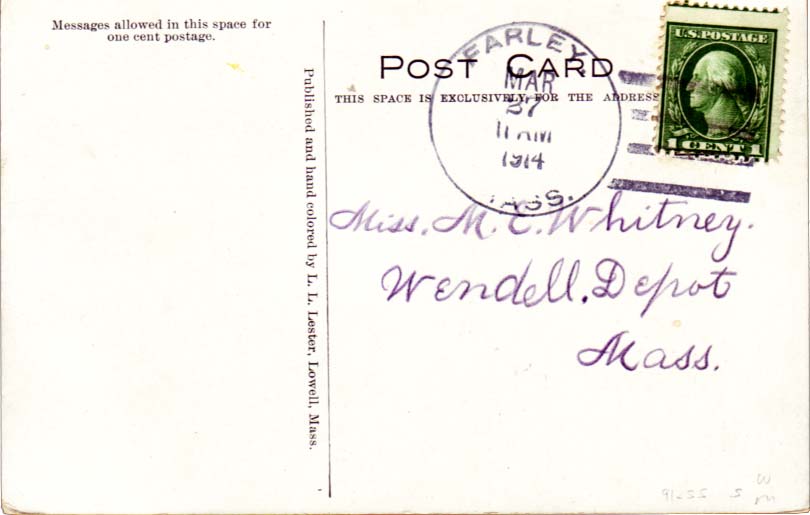 Messages allowed in this space for
one cent postage.
Published and hand colored by L. L. Lester, Lowell, Mass.
POST CARD
THIS SPACE IS EXCLUSIVELY FOR THE ADDRESS
FARLEY
MAR
27
11 AM
1914
MASS.
U.S. POSTAGE
1 CENT 1
Miss. M. E. Whitney.
Wendell. Depot
Mass.
91-55 5